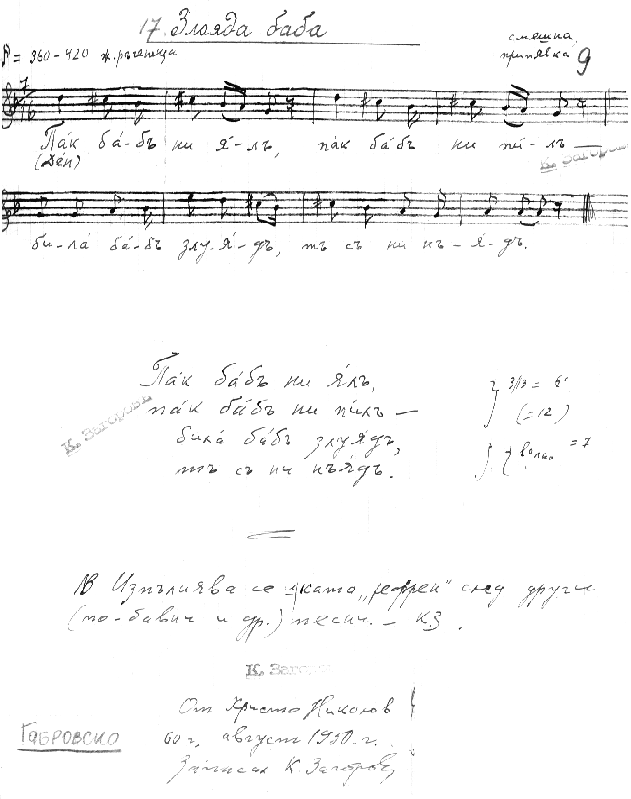 17. Злояда баба
смешна,
припявка 9
= 360-420 ж. ръченица
Па́к ба́-бъ ни я́-лъ, па́к ба́бъ ни пи́-лъ —
(Де́н)
К. Загоров
би-ла́ ба́-бъ злу-я́-дъ, тъ съ ни нъ-я́-дъ.
Па́к ба́бъ ни я́лъ,
па́к ба́бъ ни пи́лъ —
била́ ба́бъ злуя́дъ,
тъ съ ни нъя́дъ.
3|/3 = 6
(=12)
= 7
К. Загоров
NB Изпълнява се като „рефрен" след други
(по-бавни и др.) песни. — КЗ.
К. Загоров
От Христо Николов
60 г., август 1950 г.
Записал К. Загоров,
ГАБРОВСКО